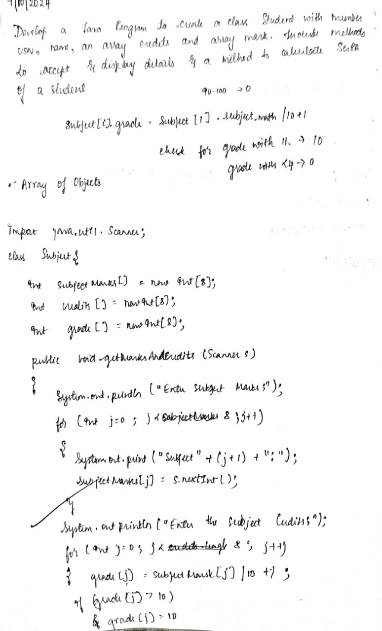 1/10/2024
Develop a Java Program to create a class Student with member
usn, name, an array credits and array mark. Include methods
to accept & display details & a method to calculate SGPA
of a student
90-100 → 0
Subject[i].grade = Subject[i].subject.marks /10+1
check for grade with 11 → 10
grade with <4 → 0
Array of Objects
Import java.util.Scanner;
class Subject {
int subjectMarks[] = new int[8];
int credits[] = new int[8];
int grade[] = new int[8];
public void getMarksAndCredits (Scanner s)
{
System.out.println ("Enter Subject Marks:");
for (int j=0 ; j< 8 ; j++)
{
System.out.print ("Subject" + (j+1) + ":");
SubjectMarks[j] = s.nextInt();
}
System.out.println ("Enter the Subject Credits:");
for (int j=0; j< 8; j++)
{ grade[j] = subjectMarks[j] /10 +1 ;
if (grade[j] > 10)
{ grade[j] = 10